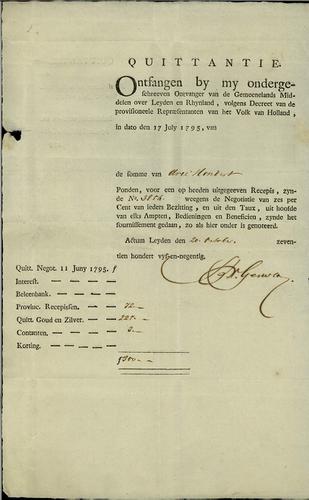 QUITTANTIE.
Ontfangen by my onderge-
schreeven Ontvanger van de Gemeenelands Mid-
delen over Leyden en Rhynland, volgens Decreet van de
provisioneele Repræsentanten van het Volk van Holland,
in dato den 17 July 1795, van
de somme van drie Hondert
Ponden, voor een op heeden uitgegeeven Recepis, zyn-
de No. 3856. weegens de Negotiatie van zes per
Cent van ieders Bezitting, en uit den Taux, uit hoofde
van elks Ampten, Bedieningen en Beneficien, zynde het
fournissement gedaan, zo als hier onder is genoteerd.
Actum Leyden den 20 October zeven-
tien hondert vyf-en-negentig.
Quitt. Negot. 11 Juny 1795. f
Interest. — — — —
Beleenbank. — — —
Provinc. Recepissen. — 72 —
Quitt. Goud en Zilver. — 225 —
Contanten. — — — 3 —
Korting. — — — —
f300 —